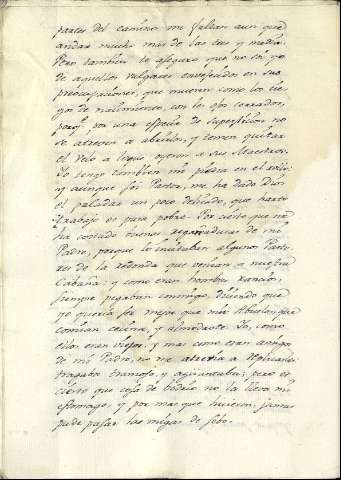 partes del camino me faltan aun que
andar mucho mas de las tres y media.
Pero tambien le aseguro que no soy yo
de aquellos vulgares envejecidos en sus
preocupaciones, que mueren como los cie-
gos de nacimiento, con los ojos cerrados,
porq.e por una especie de supersticion no
se atreven a abrirlos, y temen quitar
el velo a lo que oyeron a sus Maestros.
Yo tengo tambien mi piedra en el rollo;
y aunque soi Pastor, me ha dado Dios
el paladar un poco delicado, que harto
trabajo es para pobre. Por cierto que me
ha costado buenas regañaduras de mi
Padre, porque lo inducian algunos Pasto-
res de la redonda que venian a nuestra
Cabaña; y como eran hombres rancios,
siempre pegaban conmigo, diciendo que
yo queria ser mejor que mis Abuelos, que
comian cecina, y almodrote. Yo, como
ellos eran viejos, y mas como eran amigos
de mi Padre, no me atrevia a replicarles
tragaba y aguantaba; pero es
cierto que cosa de bodrio no la lleva mi
estomago, y por mas que hicieron, jamas
pude pasar las migas de sebo.